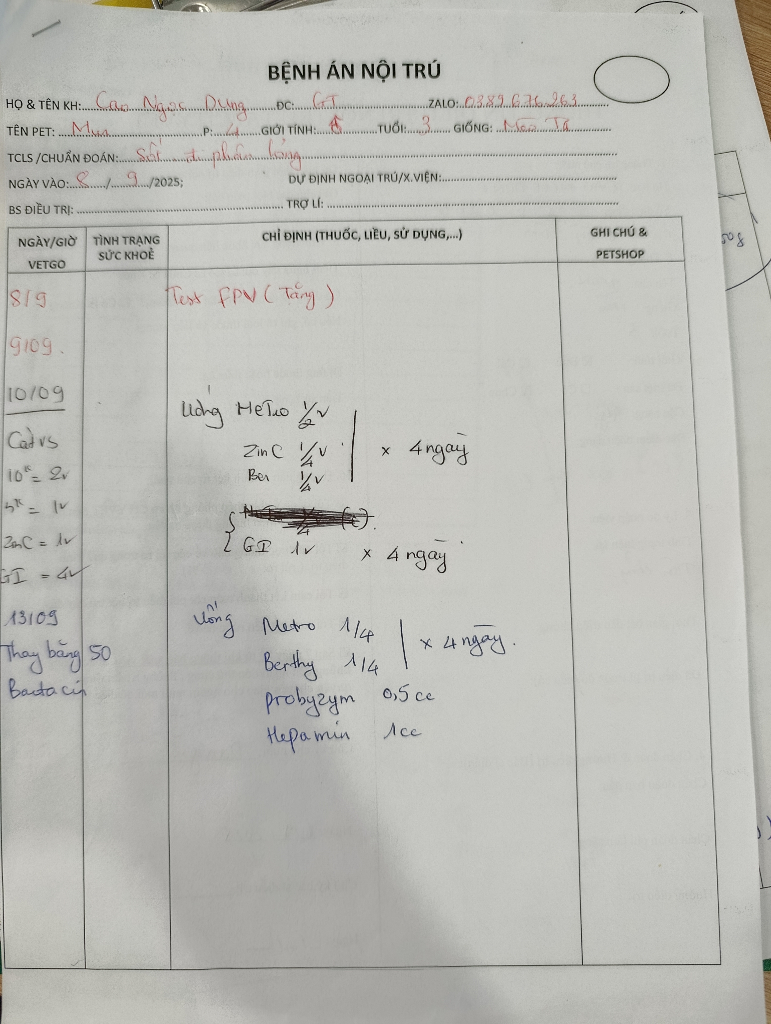 BỆNH ÁN NỘI TRÚ
HỌ & TÊN KH: Cao Ngọc Dung ĐC: GT ZALO: 0389 676 263
TÊN PET: Mun P: 4 GIỚI TÍNH: TUỔI: 3 GIỐNG: Mèo Ta
TCLS /CHUẨN ĐOÁN: Sốt phân lỏng
NGÀY VÀO: 8 / 9 /2025; DỰ ĐỊNH NGOẠI TRÚ/X.VIỆN:
BS ĐIỀU TRỊ: TRỢ LÍ:
NGÀY/GIỜ VETGO
TÌNH TRẠNG SỨC KHOẺ
CHỈ ĐỊNH (THUỐC, LIỀU, SỬ DỤNG,...)
GHI CHÚ & PETSHOP
8/9 Test FPV ( Tặng )
9/09.
10/09 Uống Metro 1/2v
ZinC 1/4v x 4 ngày
Ber 1/4v
10k = 2v
5k = 1v
ZinC = 1v
GI 1v x 4 ngày
GI = 4v
13/09 Uống Metro 1/4 x 4 ngày.
Thay bằng 50 Berthy 1/4
Probyzym 0,5cc
Hepamin 1cc